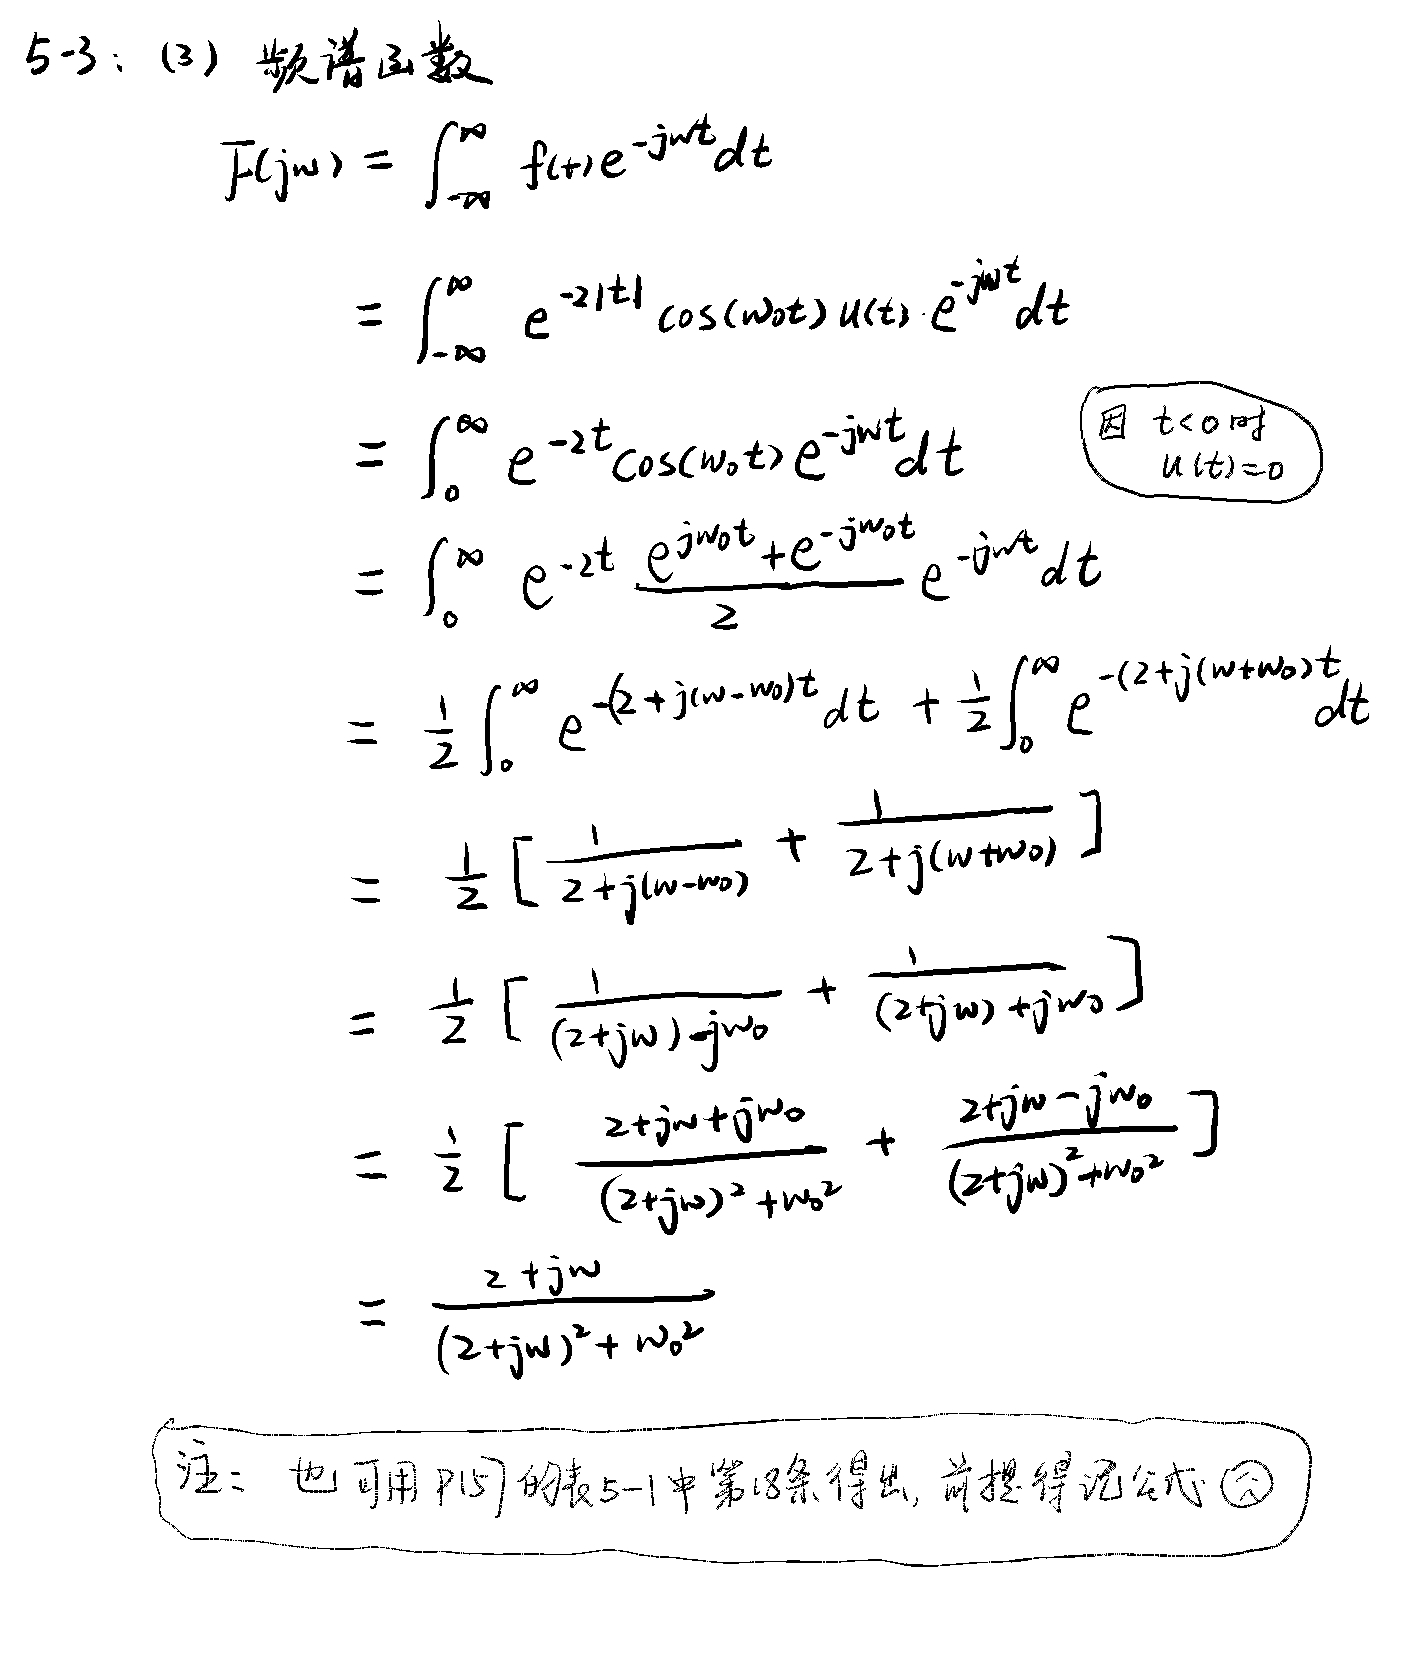 5-3: (3) 频谱函数
F(jω) = ∫_{-∞}^{∞} f(t)e^{-jωt}dt
= ∫_{-∞}^{∞} e^{-2|t|} cos(ω₀t) u(t)·e^{-jωt}dt
= ∫_0^∞ e^{-2t}cos(ω₀t)e^{-jωt}dt
因 t<0时
u(t)=0
= ∫_0^∞ e^{-2t} \frac{e^{jω₀t}+e^{-jω₀t}}{2} e^{-jωt}dt
= \frac{1}{2}∫_0^∞ e^{-(2+j(ω-ω₀)t}dt + \frac{1}{2}∫_0^∞ e^{-(2+j(ω+ω₀)t}dt
= \frac{1}{2}[\frac{1}{2+j(ω-ω₀)} + \frac{1}{2+j(ω+ω₀)}]
= \frac{1}{2}[\frac{1}{(2+jω)-jω₀} + \frac{1}{(2+jω)+jω₀}]
= \frac{1}{2}[\frac{2+jω+jω₀}{(2+jω)²+ω₀²} + \frac{2+jω-jω₀}{(2+jω)²+ω₀²}]
= \frac{2+jω}{(2+jω)²+ω₀²}
注: 也可用P157的表5-1中第18条得出,前提得记公式